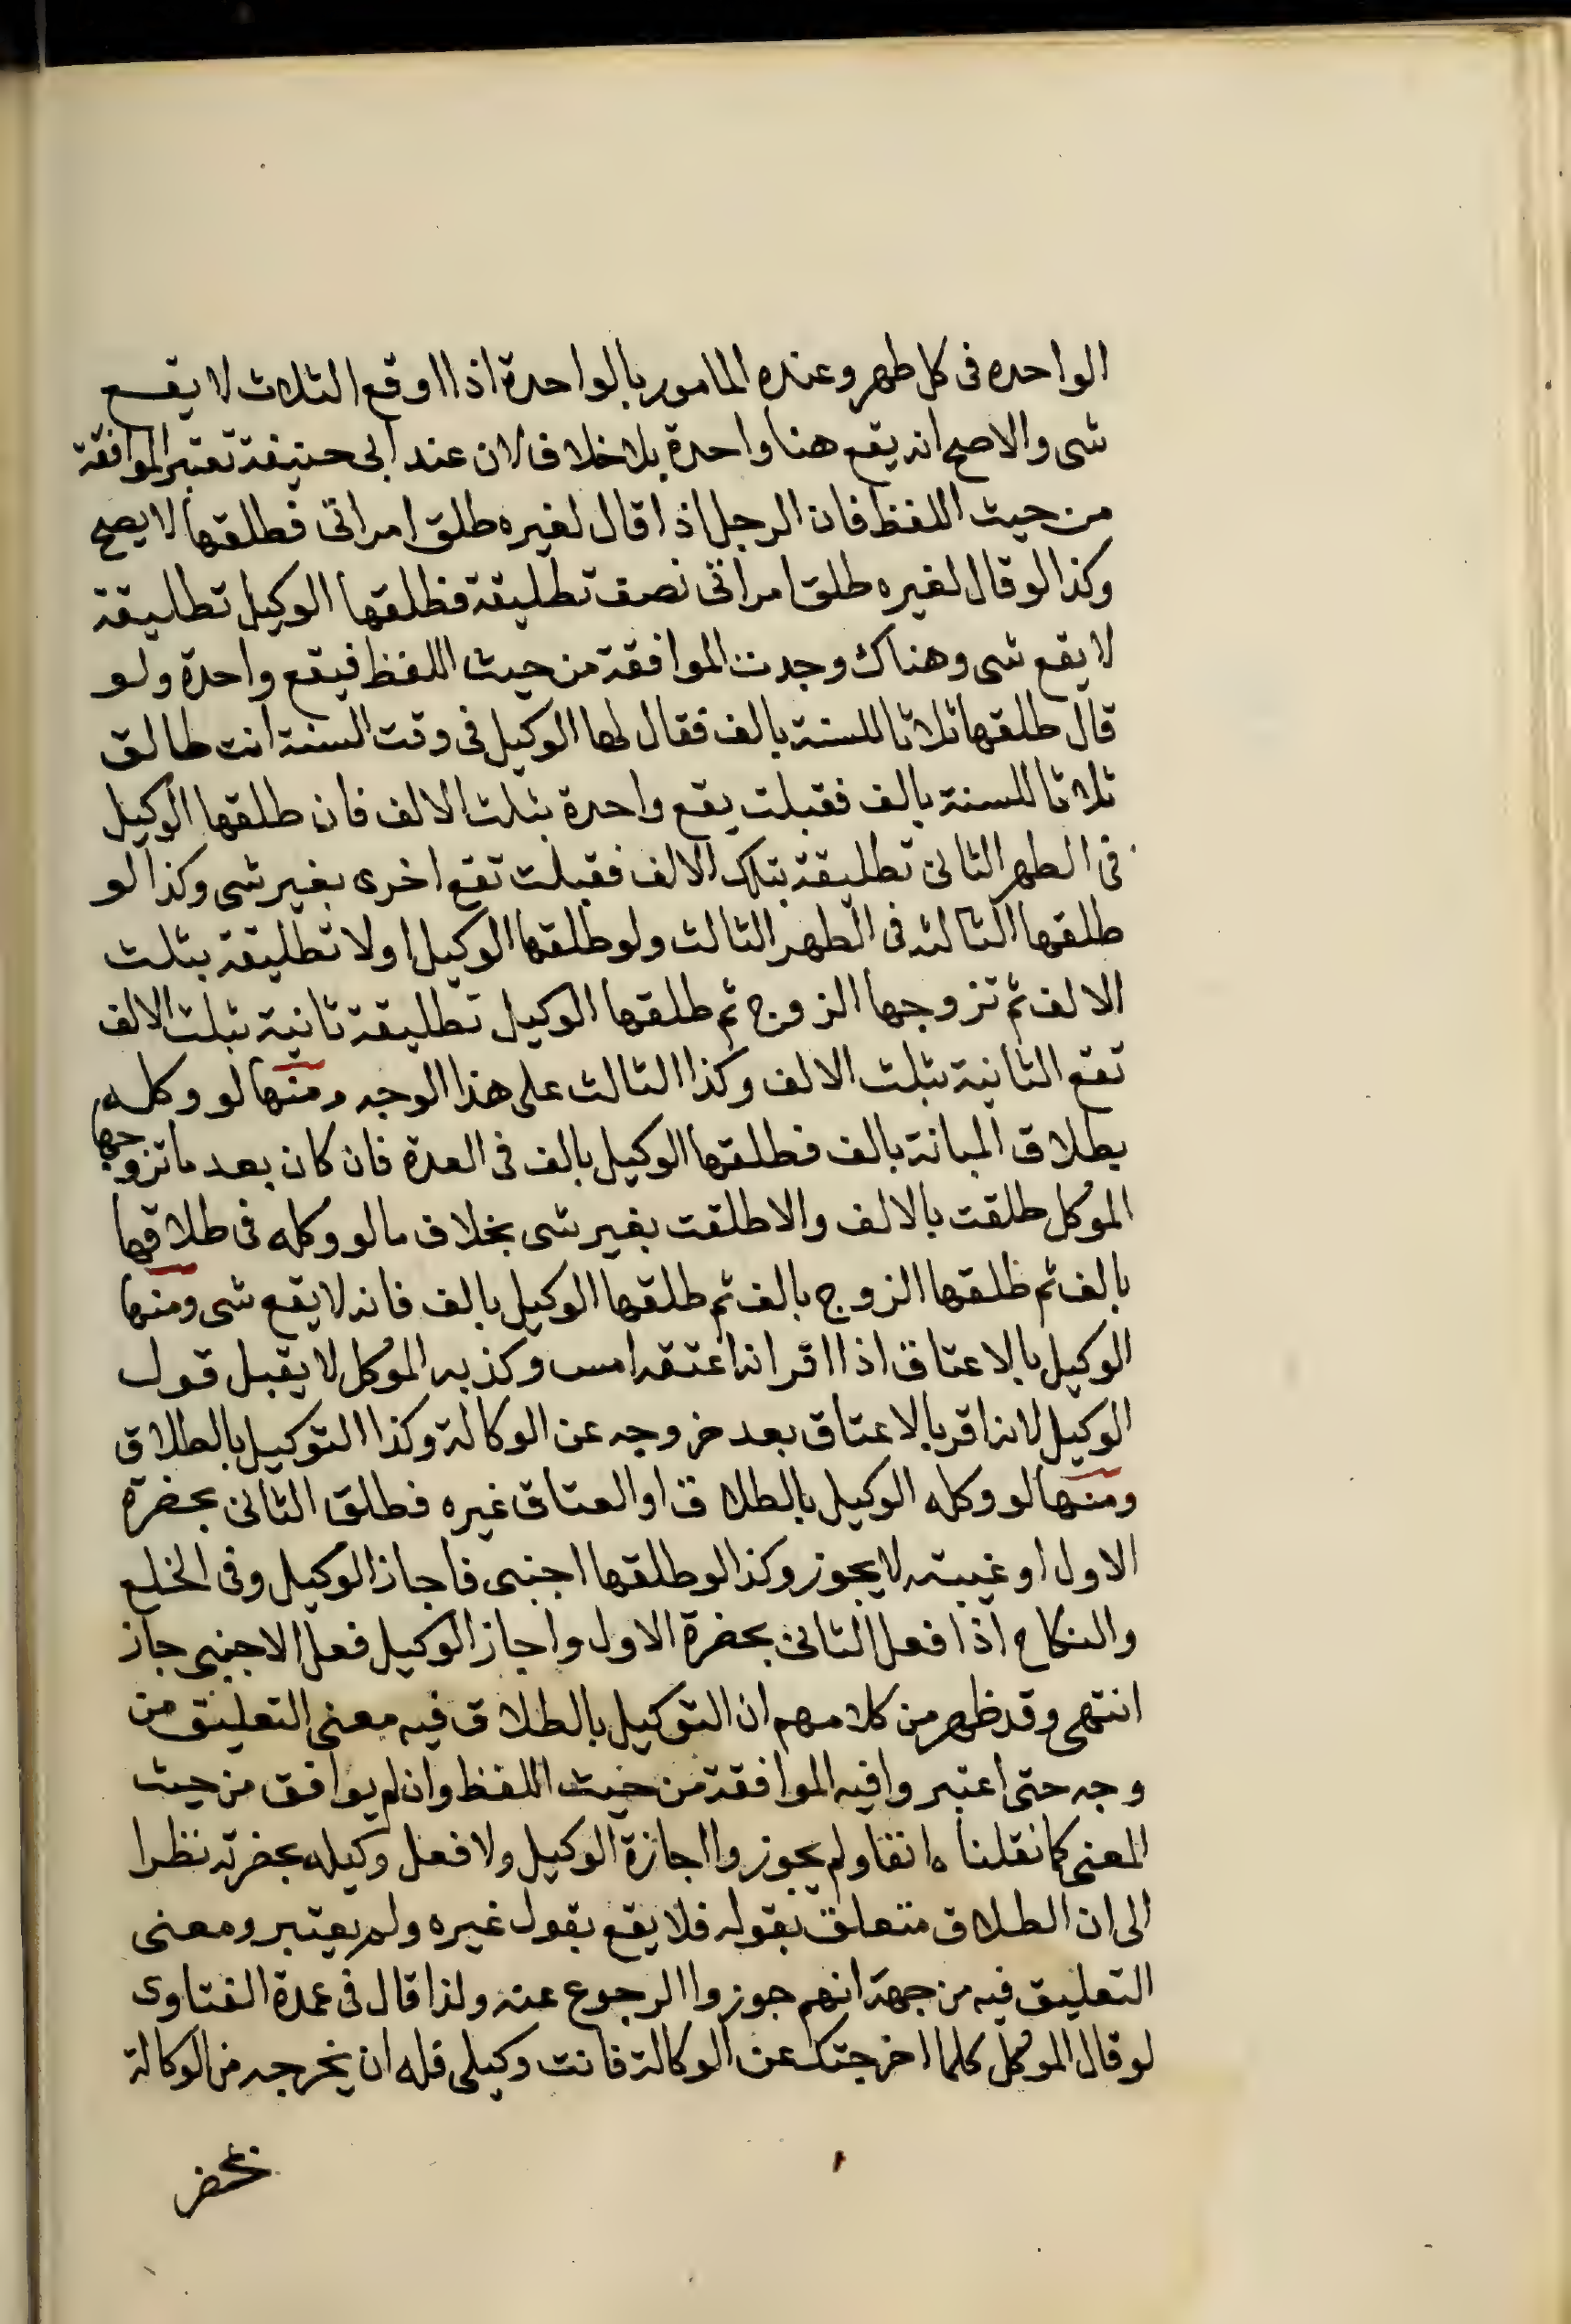 الواحده فى كل طهر وعنده المامور بالواحدة اذا اوقع الثلاث لا يقع
شى والاصح انه يقع هنا واحدة بلا خلاف لان عند ابى حنيفة تعتبر الموافقة
من حيث اللفظ فان الرجل اذا قال لغيره طلق امراتى فطلقها لا يصح
وكذا لو قال لغيره طلق امراتى نصف تطليقة فطلقها الوكيل تطليقة
لا يقع شى وهناك وجدت الموافقة من حيث اللفظ فيقع واحدة ولو
قال طلقها ثلاثا للسنة بالف فقال لها الوكيل فى وقت السنة انت طالق
ثلاثا للسنة بالف فقبلت يقع واحدة بثلث الالف فان طلقها الوكيل
فى الطهر الثانى تطليقة بتلك الالف فقبلت تقع اخرى بغير شى وكذا لو
طلقها الثالثه فى الطهر الثالث ولو طلقها الوكيل اولا تطليقة بثلث
الالف ثم تزوجها الزوج ثم طلقها الوكيل تطليقة ثانية بثلث الالف
تقع الثانية بثلث الالف وكذا الثالث على هذا الوجه ومنها لو وكله
بطلاق المبانة بالف فطلقها الوكيل بالف فى العدة فان كان بعد ما تزوجها
الموكل طلقت بالالف والا طلقت بغير شى بخلاف ما لو وكله فى طلاقها
بالف ثم طلقها الزوج بالف ثم طلقها الوكيل بالف فانه لا يقع شى ومنها
الوكيل بالاعتاق اذا اقر انه اعتقه امس وكذبه الموكل لا يقبل قول
الوكيل لانه اقر بالاعتاق بعد خروجه عن الوكالة وكذا التوكيل بالطلاق
ومنها لو وكله الوكيل بالطلاق او العتاق غيره فطلق الثانى بحضرة
الاول او غيبته لا يجوز وكذا لو طلقها اجنبى فاجاز الوكيل وفى الخلع
والنكاح اذا فعل الثانى بحضرة الاول واجاز الوكيل فعل الاجنبى جاز
انتهى وقد ظهر من كلامهم ان التوكيل بالطلاق فيه معنى التعليق من
وجه حتى اعتبروا فيه الموافقة من حيث اللفظ وان لم يوافق من حيث
المعنى كما نقلناه انفا ولم يجوزوا اجازة الوكيل ولا فعل وكيله بحضرته نظرا
الى ان الطلاق متعلق بقوله فلا يقع بقول غيره ولم يعتبروا معنى
التعليق فيه من جهة انهم جوزوا الرجوع عنه ولذا قال فى عمدة الفتاوى
لو قال الموكل كلما اخرجتك عن الوكالة فانت وكيلى فله ان يخرجه من الوكالة
بمحضر